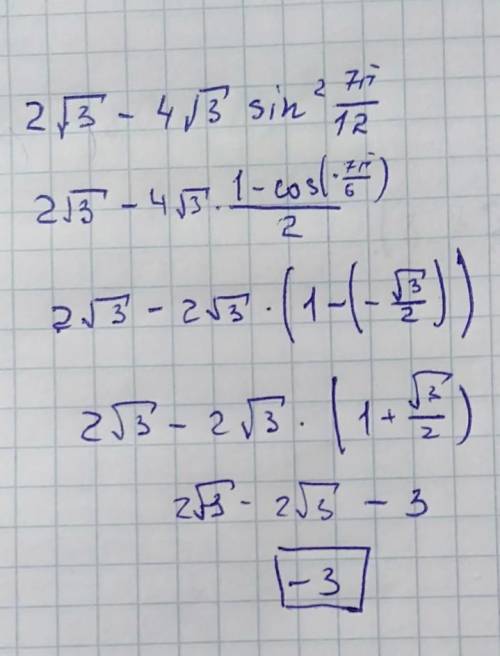 2√3 - 4√3 sin² 7π/12
2√3 - 4√3 · (1 - cos(·7π/6))/2
2√3 - 2√3 · (1 - (-√3/2))
2√3 - 2√3 · (1 + √3/2)
2√3 - 2√3 - 3
-3